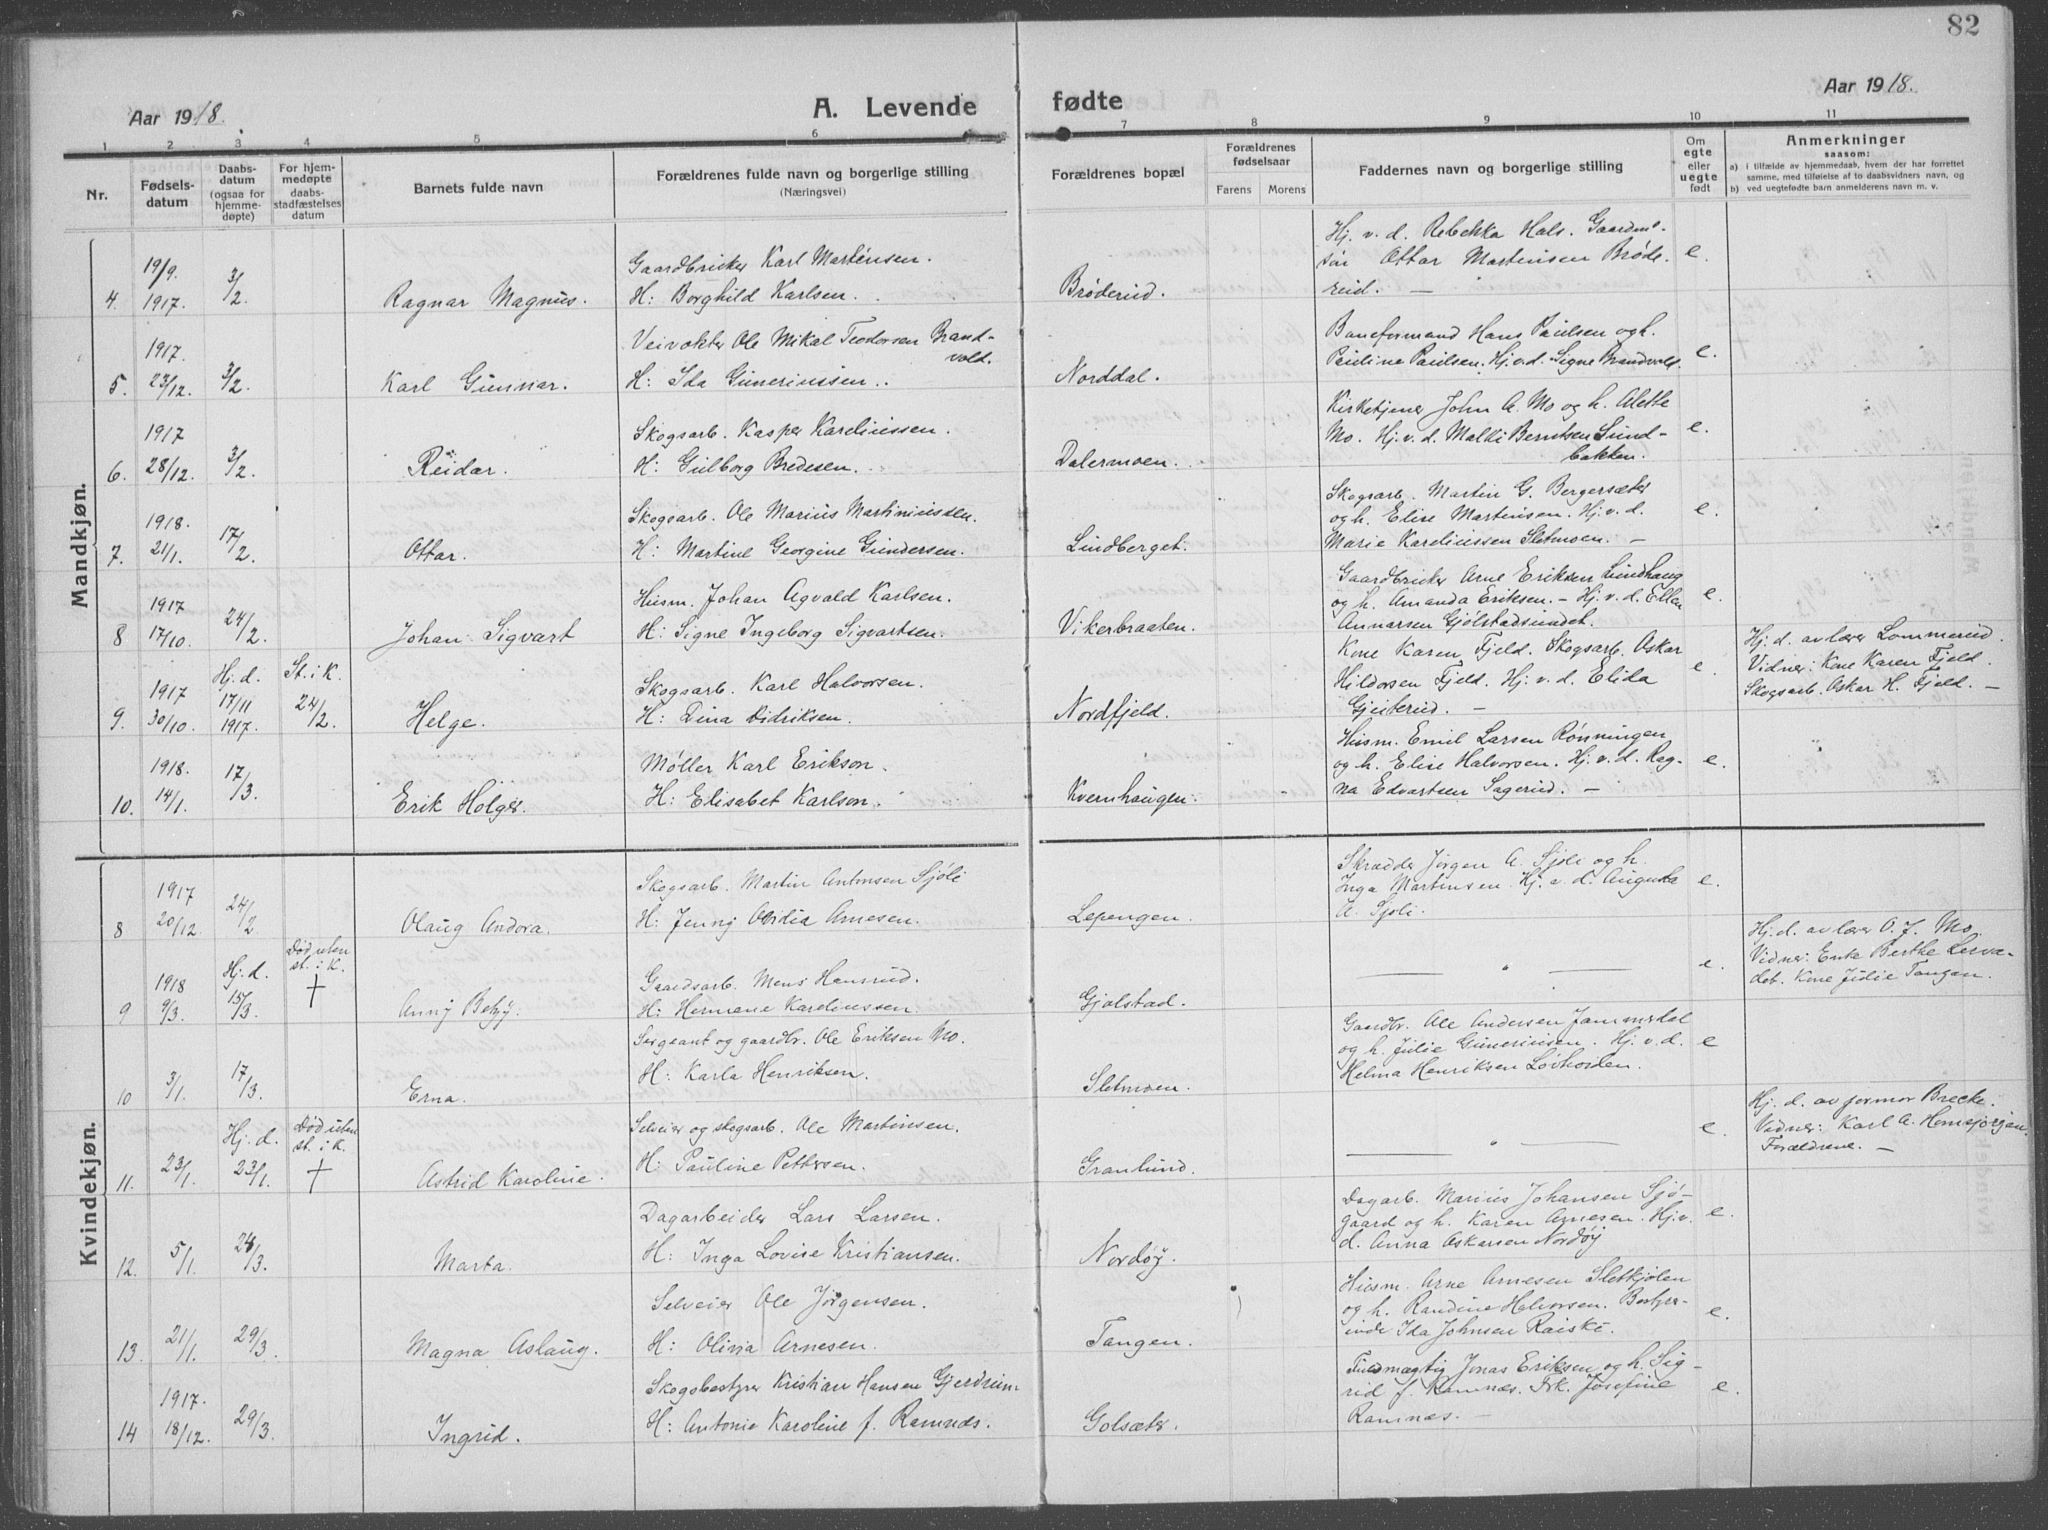 82
Aar 1918.
A. Levende fødte
Aar 1918.
1 2 3 4 5 6 7 8 9 10 11
Nr.
Fødsels-
datum
Daabs-
datum
(ogsaa for
hjemme-
døpte)
For hjem-
medøpte
daabs-
stadfæstelses
datum
Barnets fulde navn
Forældrenes fulde navn og borgerlige stilling
(Næringsvei)
Forældrenes bopæl
Forældrenes
fødselsaar
Farens Morens
Faddernes navn og borgerlige stilling
Om
egte
eller
uegte
født
Anmerkninger
saasom:
a) i tilfælde av hjemmedaab, hvem der har forrettet
samme, med tilføielse af to daabsvidners navn, og
b) ved uegtefødte barn anmelderens navn m. v.
Mandkjøn.
4. 19/9. 1917. 3/2. Ragnar Magnus.
Gaardbruker Karl Martinsen.
H: Borghild Karlsen.
Brøderud.
Hj. v. d. Rebekka Hals. Gaardm.
Ottar Martinsen Brøde-
reid. —
e.
5. 1917. 23/12. 3/2. Karl Gunnar.
Veivokter Ole Mikal Teodorsen Brand-
vold.
H: Ida Guneriussen.
Norddal.
Baneformand Hans Paulsen og h.
Pauline Paulsen. Hj. v. d. Signe Brandvold.
e.
6. 1917 28/12. 3/2. Reidar.
Skogsarb. Kasper Kareliussen.
H: Gulborg Bredesen.
Dalermoen.
Kirketjener John A. Mo og h. Alette
Mo. Hj. v. d. Malli Berntsen Sund-
bakken.
e.
7. 1918. 21/1. 17/2. Ottar.
Skogsarb. Ole Marius Martiniussen.
H: Martine Georgine Gundersen.
Lindberget.
Skogsarb. Martin G. Bergersæter
og h. Elise Martinsen. Hj. v. d.
Marie Kareliussen Sletmoen. —
e.
8 1917 17/10. 24/2. Johan Sigvart
Husm. Johan Agvald Karlsen.
H: Signe Ingeborg Sigvartsen.
Vikerbraaten.
Gaardbruker Arne Eriksen Lundhaug
og h. Amanda Eriksen. — Hj. v. d. Ellen
Annarsen Gjølstadsundet.
e.
9. 1917 30/10. Hj. d. 17/11 1917. St. i K. 24/2. Helge.
Skogsarb. Karl Halvorsen.
H: Dina Didriksen.
Nordfjeld.
Kone Karen Fjeld. Skogsarb. Oskar
Hildorsen Fjeld. Hj. v. d. Elida
Gjeiterud. —
e.
Hj. d. av lærer Lommerud.
Vidner: Kone Karen Fjeld.
Skogsarb. Oskar H. Fjeld. —
10. 1918. 14/1. 17/3. Erik Holger.
Møller Karl Erikson.
H: Elisabet Karlson.
Kvernhaugen.
Husm. Emil Larsen Rønningen
og h. Elise Halvorsen. Hj. v. d. Rag-
na Edvartsen Sagerud. —
e.
Kvindekjøn.
8 1917 20/12. 24/2 Olaug Andora.
Skogsarb. Martin Antonsen Sjøli
H: Jenny Ovidia Arnesen.
Lepengen.
Skrædder Jørgen A. Sjøli og h.
Inga Martinsen. Hj. v. d. Augusta
A. Sjøli.
e.
9 1918 9/3. Hj. d. 15/3. Død uten st. i K. † Anny Betzy.
Gaardsarb. Mons Hansrud.
H: Hermane Kareliussen.
Gjølstad.
— " —
e.
Hj. d. av lærer O. J. Mo.
Vidner: Enke Berthe Lerva-
det. Kone Julie Tangen.
10 3/1. 17/3. Erna.
Sergeant og gaardbr. Ole Eriksen Mo.
H: Karla Henriksen.
Sletmoen.
Gaardbr. Ole Andersen Jammerdal
og h. Julie Guneriusen. Hj. v. d.
Helma Henriksen Løvhorden.
e
11. 23/1. Hj. d. 23/1. Død uten st. i K. † Astrid Karoline.
Selveier og skogsarb. Ole Martinsen.
H: Pauline Pettersen.
Granlund.
— " —
e.
Hj. d. av jormor Brecke.
Vidner: Karl A. Hemsjørgen.
Forældrene. —
12. 5/1. 24/3. Marta.
Dagarbeider Lars Larsen.
H: Inga Lovise Kristiansen.
Nordøy.
Dagarb. Marius Johansen Sjø-
gaard og h. Karen Arnesen. Hj. v.
d. Anna Oskarsen Nordøy
e.
13. 21/1. 29/3. Magna Aslaug.
Selveier Ole Jørgensen.
H: Olivia Arnesen.
Tangen.
Husm. Arne Arnesen Sletkjølen
og h. Randine Halvorsen. Bestyre-
inde Ida Johnsen Raiske.
e.
14 1917. 18/12. 29/3. Ingrid.
Skogbestyrer Kristian Hansen Gjerdrum
H: Antonie Karoline f. Ramnæs.
Golsæter.
Fuldmægtig Jonas Eriksen og h. Sig-
rid f. Ramnæs. Frk. Josefine
Ramnæs. —
e.